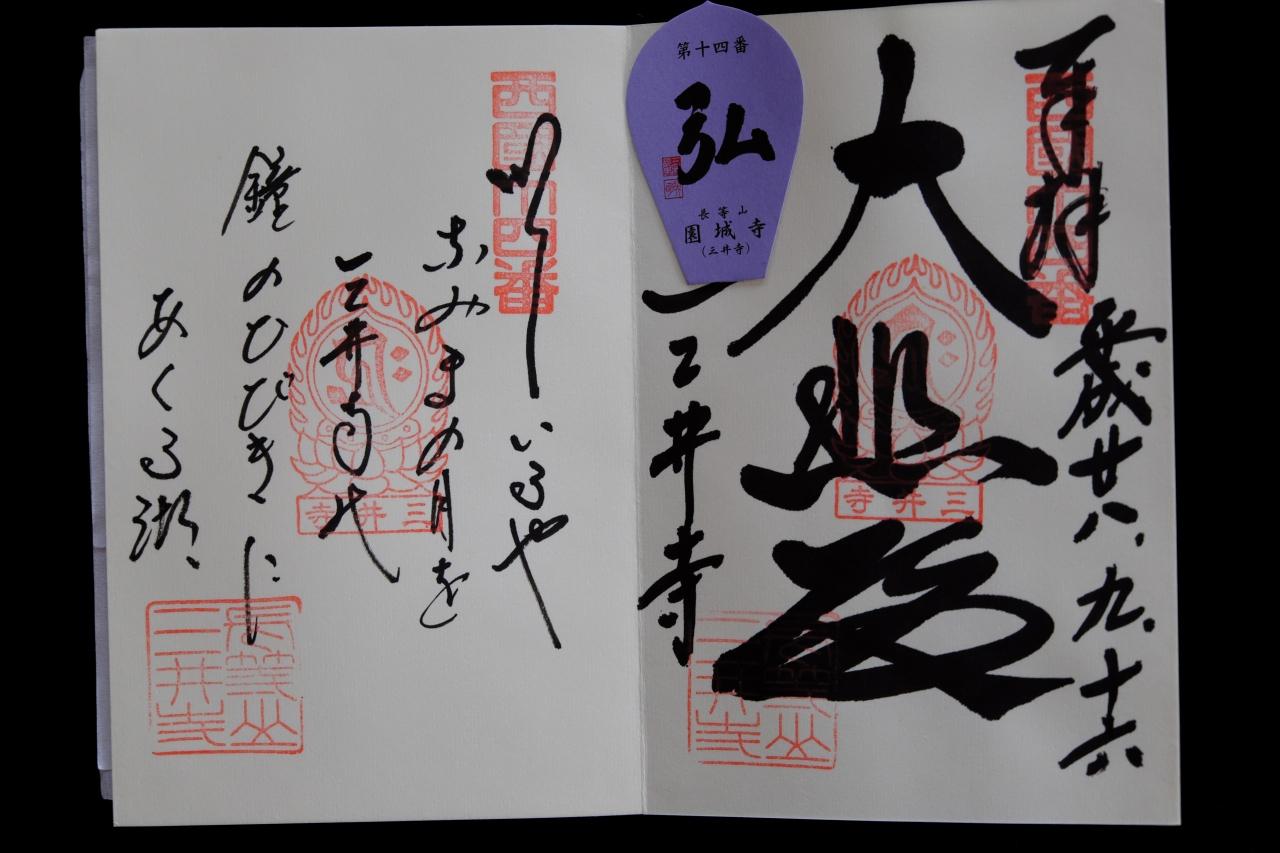 奉拝
平成廿八、九、十六
西國十四番
大悲殿
三井寺
三井寺
長等山
三井寺
第十四番
弘
長等山
園城寺
(三井寺)
西國十四番
いるや
なみまの月を
三井寺の
鐘のひびきに
あくる湖
三井寺
長等山
三井寺